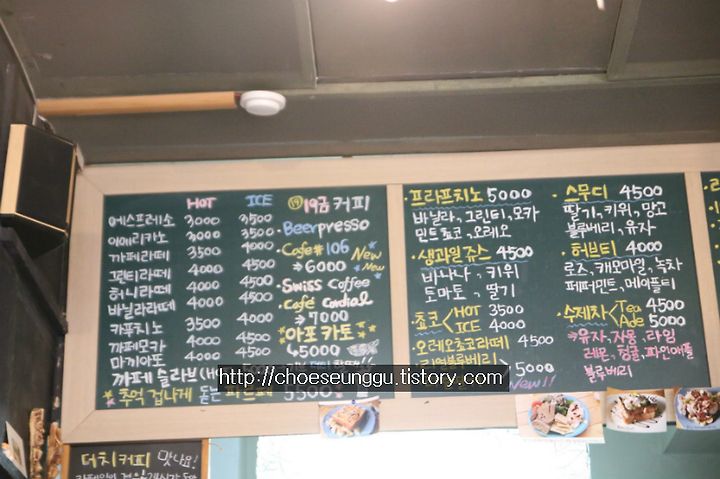 HOT ICE
에스프레소 3000 3500
아메리카노 3000 3500
까페라떼 3500 4000
그린티라떼 4000 4500
허니라떼 4000 4500
바닐라라떼 4000 4500
카푸치노 3500 4000
까페모카 4000 4500
마끼아또 4000 4500
까페 슬러브
추억 겁나게 돋는
5500
19 19금 커피
Beerpresso
Cafe# 106 New
⇒6000 New
Swiss Coffee
Cafe Cordial
⇒7000
아포카토
5000
프라프치노 5000
바닐라, 그린티, 모카
민트쵸코, 오레오
생과일쥬스 4500
바나나, 키위
토마토, 딸기
쵸코 HOT 3500
ICE 4000
오레오쵸코라떼 4500
5000
New!!
스무디 4500
딸기, 키위, 망고
블루베리, 유자
허브티 4000
로즈, 캐모마일, 녹차
페퍼민트, 메이플티
수제차 Tea 4500
Ade 5000
⇒유자, 자몽, 라임
레몬, 파인애플
블루베리
http://choeseunggu.tistory.com
더치커피 맛나요!